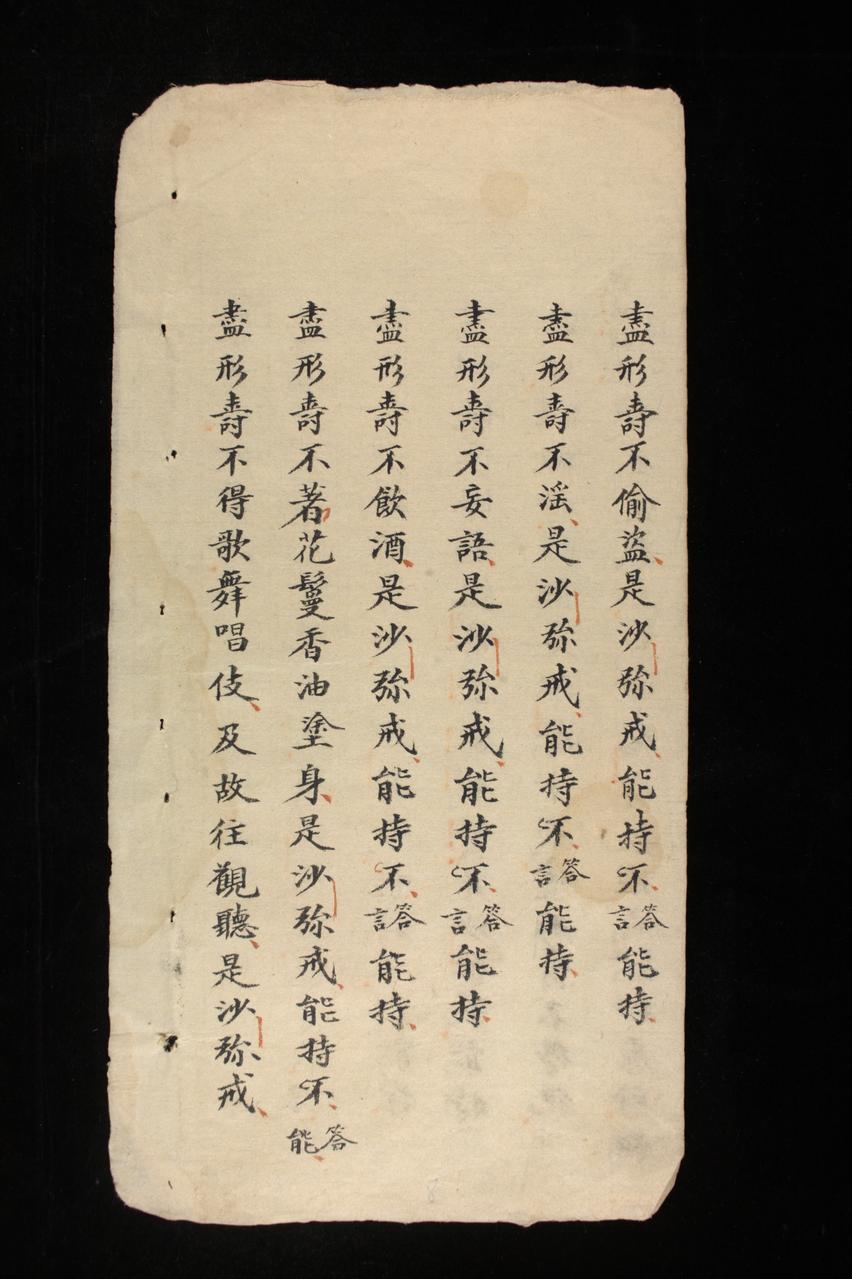 盡形壽不偷盜是沙弥戒能持不答言能持
盡形壽不滛是沙弥戒能持不答言能持
盡形壽不妄語是沙弥戒能持不答言能持
盡形壽不飲酒是沙弥戒能持不答言能持
盡形壽不著花鬘香油塗身是沙弥戒能持不答能
盡形壽不得歌舞唱伎及故往觀聽是沙弥戒